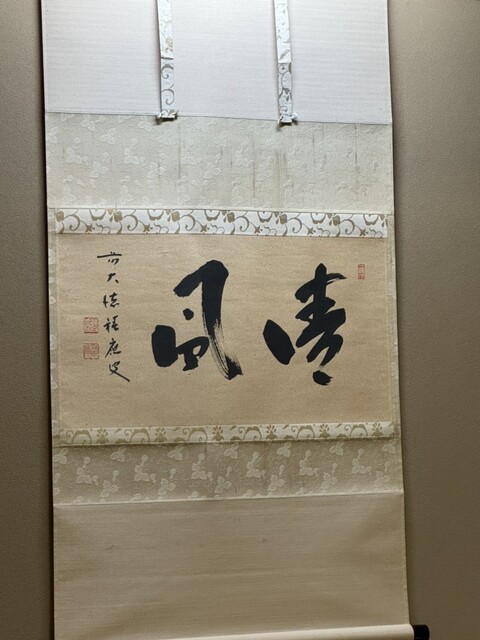 清風
前大徳積應叟